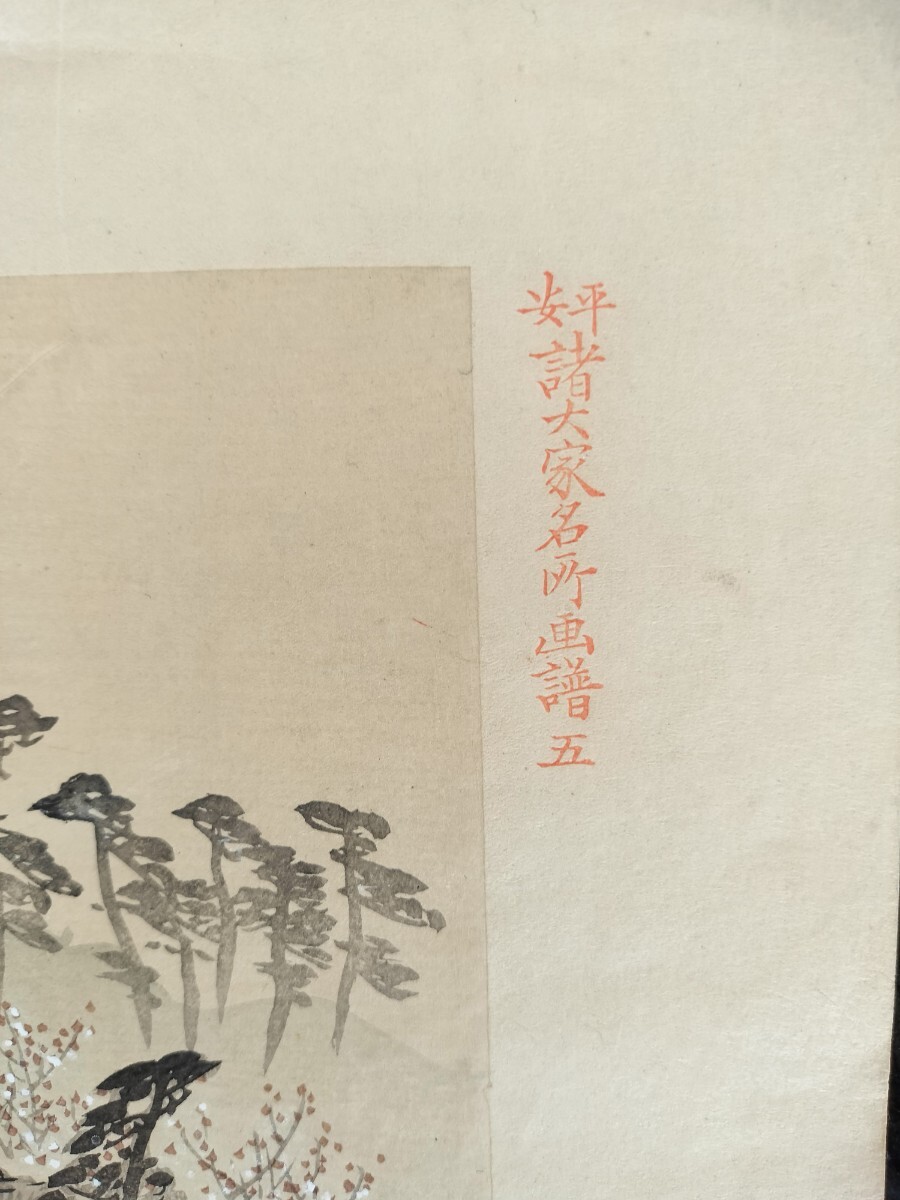 平安諸大家名所画譜 五